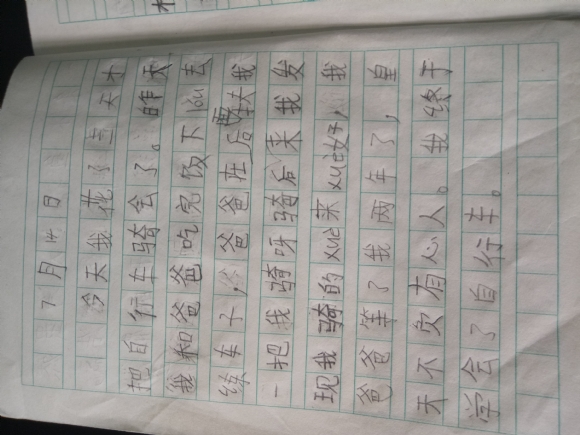 7月14日
今天我花了三天才
把自行车骑会了。昨天,
我和爸爸吃完饭下lóu去
练车子,爸爸在后面扶我
一把我骑呀骑后来我发
现我骑的xuè来xuè好,我
爸爸等了我两年了,皇
天不负有心人。我终于
学会了自行车。